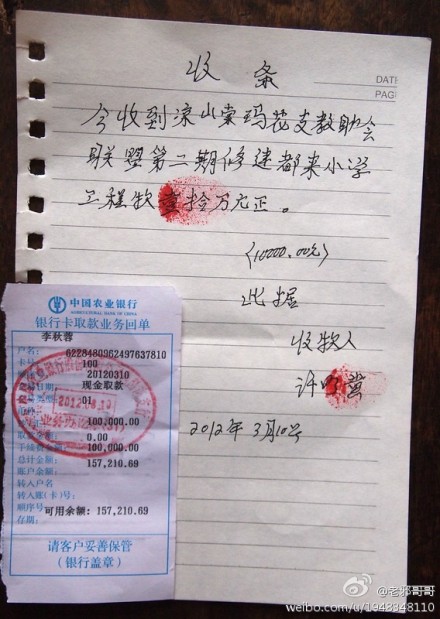 收条
DATE
PAG
今收到凉山索玛花支教助会
联盟第二期修建都来小学
工程款壹拾万元正。
(10000.00元)
此据
收款人
许
2012年3月10号
中国农业银行
AGRICULTURAL BANK OF CHINA
银行卡取款业务回单
李秋蓉
户名:
6228480962497637810
100
20120310
现金取款
01
100,000.00
0.00
100,000.00
总计金额:
157,210.69
账户余额:
转入户名
转入账(卡)号:
顺序号:
可用余额: 157,210.69
存期:
请客户妥善保管
(银行盖章)
@老邪哥哥
weibo.com/u/1948348110